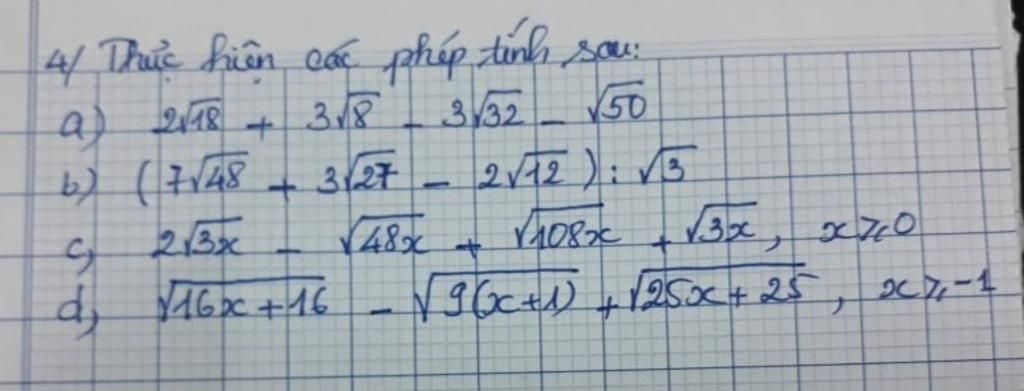 4/ Thực hiện các phép tính sau:
a) 2√18 + 3√8 - 3√32 - √50
b) (7√48 + 3√27 - 2√12) : √3
c, 2√3x - √48x + √108x + √3x, x ≥ 0
d, √16x+16 - √9(x+1) + √25x+25, x ≥ -1